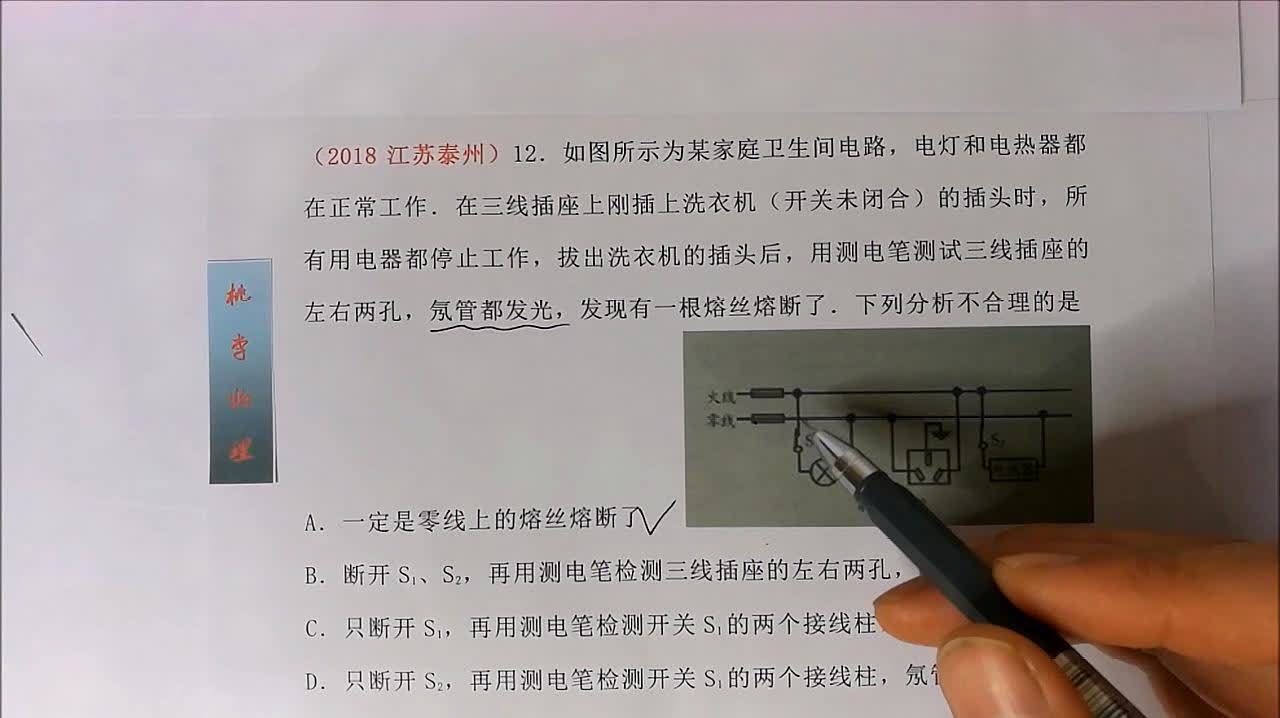 （2018 江苏泰州）12．如图所示为某家庭卫生间电路，电灯和电热器都
在正常工作．在三线插座上刚插上洗衣机（开关未闭合）的插头时，所
有用电器都停止工作，拔出洗衣机的插头后，用测电笔测试三线插座的
左右两孔，氖管都发光，发现有一根熔丝熔断了．下列分析不合理的是
桃
李
物
理
火线
零线
S
S₂
A．一定是零线上的熔丝熔断了
B．断开 S₁、S₂，再用测电笔检测三线插座的左右两孔，
C．只断开 S₁，再用测电笔检测开关 S₁的两个接线柱
D．只断开 S₂，再用测电笔检测开关 S₁的两个接线柱，氖